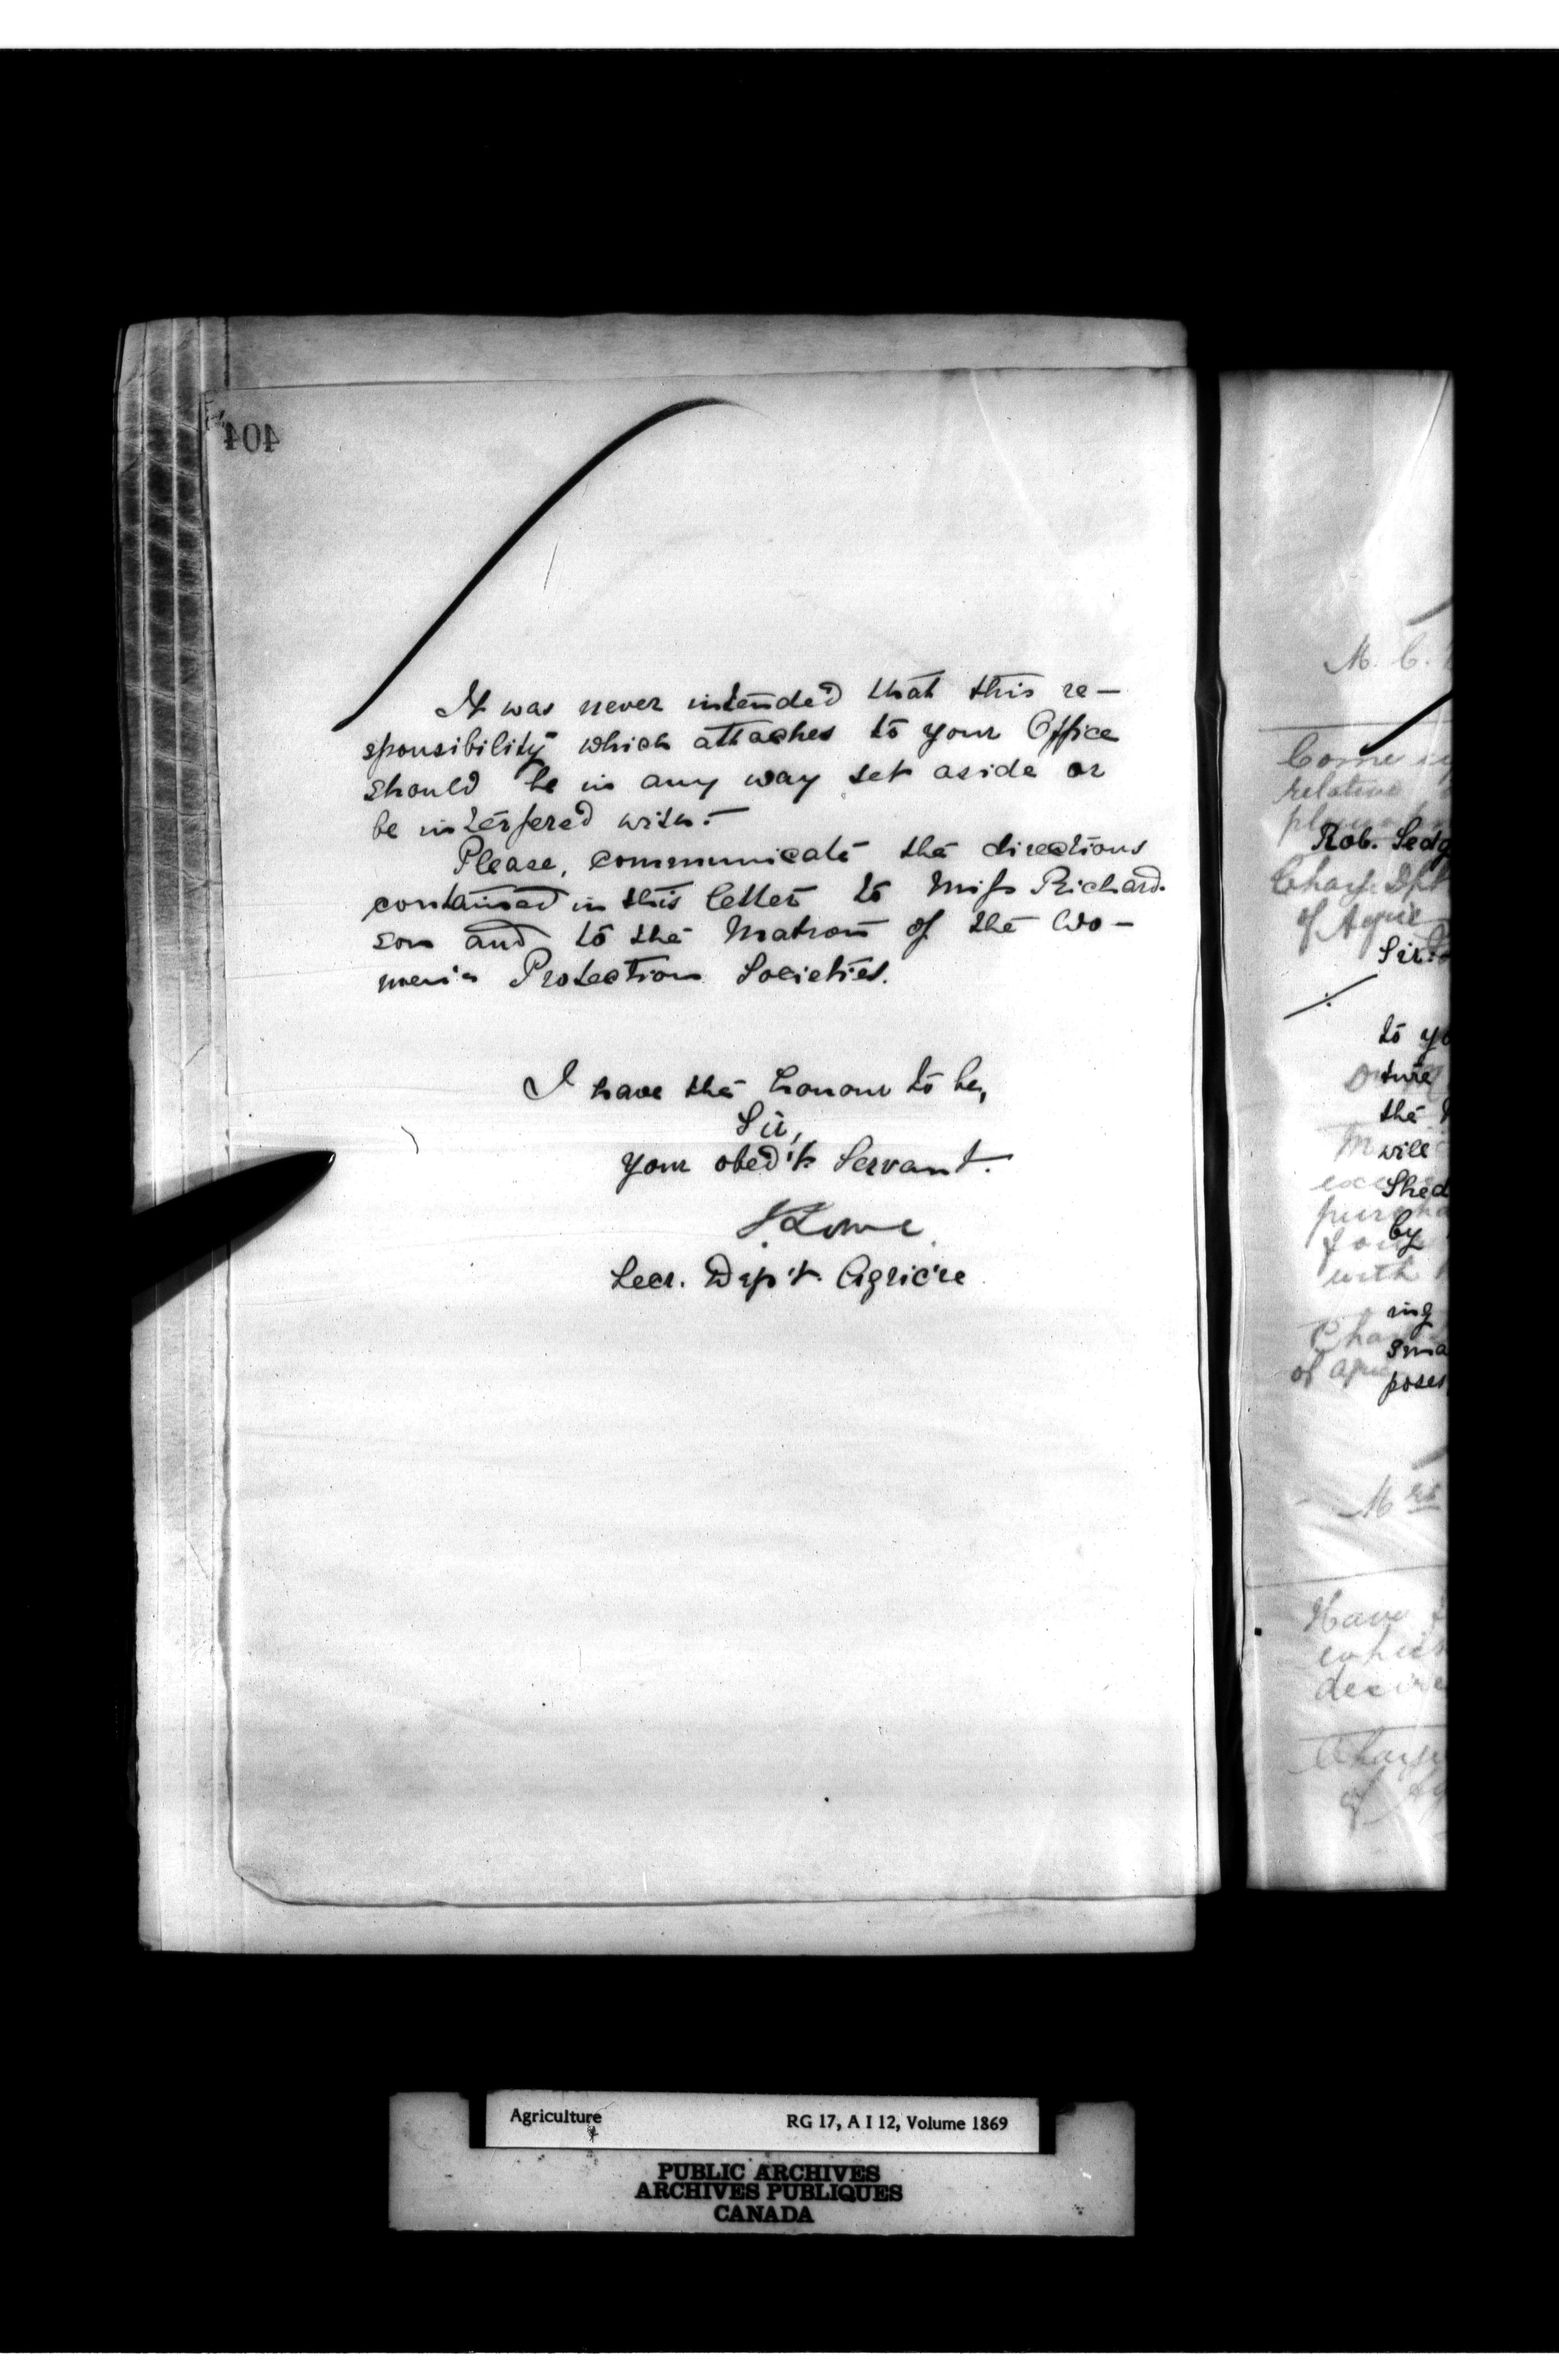 404
It was never intended that this re-
sponsibility which attaches to your Office
should be in any way set aside or
be interfered with.-
Please, communicate the directions
contained in this letter to Miss Richard.
son and to the Matron of the Wo-
men's Protection Societies.
I have the honour to be,
Sir,
your obed't Servant.
J. Lowe
Secr. Dep't. Agric're
M. C.
Come
relative
Rob. Sedg
Charge Dpt
of Agric
Sir
to yo
ture
the
will
Shed
by
with
ring
sma
poses
Mrs
Have
which
desire
Charge
of Ag
Agriculture
RG 17, A I 12, Volume 1869
PUBLIC ARCHIVES
ARCHIVES PUBLIQUES
CANADA